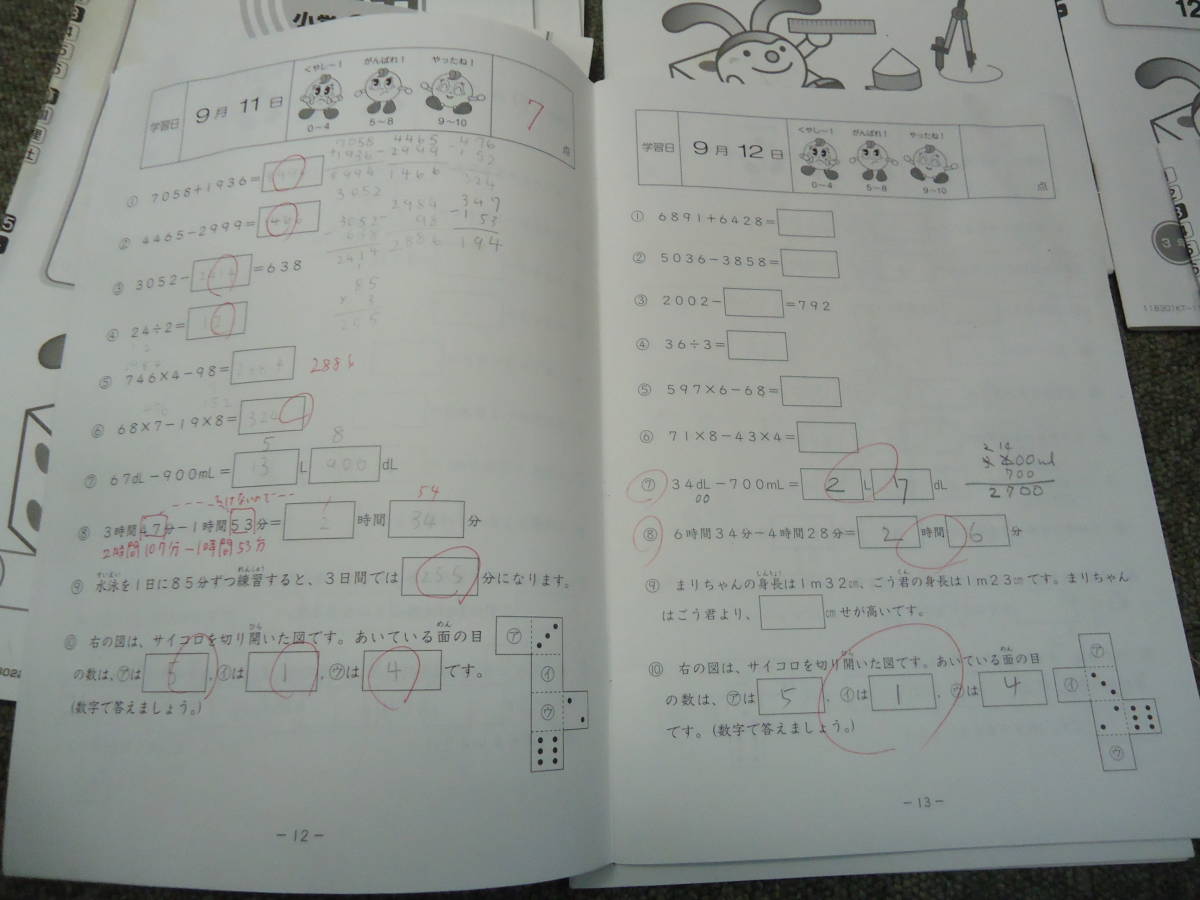 学習日 9月 11日
くやし〜! がんばれ! やったね!
0〜4 5〜8 9〜10
7 点
① 7058+1936=8994
② 4465-2999=1466
③ 3052-2414=638
④ 24÷2=12
⑤ 746×4-98= 2886
⑥ 68×7-19×8=324
5 8
⑦ 67dL-900mL=13L900dL
1 54
⑧ 3時間47分-1時間53分=2時間34分
2時間107分-1時間53分
⑨ 水泳を1日に85分ずつ練習すると、3日間では255分になります。
⑩ 右の図は、サイコロを切り開いた図です。あいている面の目
の数は、㋐は5、㋑は1、㋒は4です。
(数字で答えましょう。)
㋐
㋑
㋒
7058
+1936
8994
4465
-2999
1466
476
-152
324
3052
2984
98
2886
347
-153
194
3052
-638
2414
85
×3
255
-12-
学習日 9月 12日
くやし〜! がんばれ! やったね!
0〜4 5〜8 9〜10
点
① 6891+6428=
② 5036-3858=
③ 2002-=792
④ 36÷3=
⑤ 597×6-68=
⑥ 71×8-43×4=
⑦ 34dL-700mL=2L7dL
00
700
2700
⑧ 6時間34分-4時間28分=2時間6分
⑨ まりちゃんの身長は1m32㎝、ごう君の身長は1m23㎝です。まりちゃん
はごう君より、㎝せが高いです。
⑩ 右の図は、サイコロを切り開いた図です。あいている面の目
の数は、㋐は5、㋑は1、㋒は4
です。(数字で答えましょう。)
㋐
㋑
㋒
-13-
12